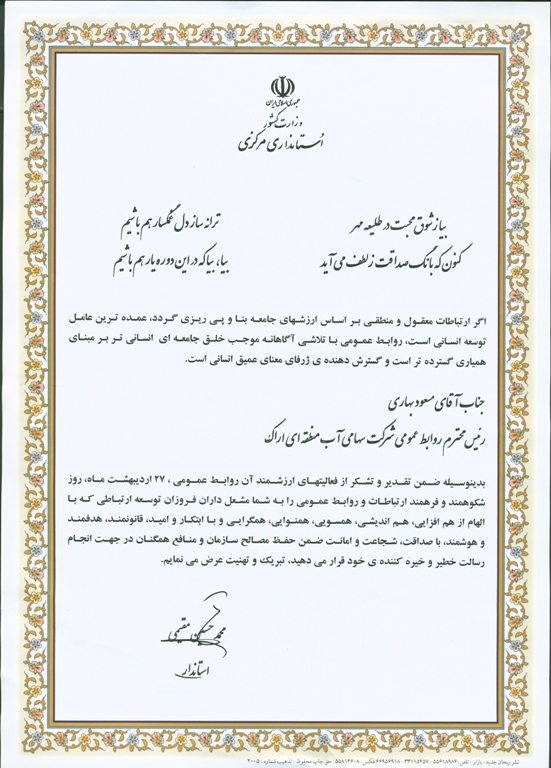 جمهوری اسلامی ایران
وزارت کشور
استانداری مرکزی
بیا ز شوق محبت در طلیعه مهر ترانه ساز دل غمگسار هم باشیم
کنون که بانگ صداقت ز لطف می آید بیا، بیا که در این دوره یار هم باشیم
اگر ارتباطات معقول و منطقی بر اساس ارزشهای جامعه بنا و پی ریزی گردد، عمده ترین عامل
توسعه انسانی است، روابط عمومی با تلاشی آگاهانه موجب خلق جامعه ای انسانی تر بر مبنای
همیاری گسترده تر است و گسترش دهنده ی ژرفای معنای عمیق انسانی است.
جناب آقای مسعود بهاری
رئیس محترم روابط عمومی شرکت سهامی آب منطقه ای اراک
بدینوسیله ضمن تقدیر و تشکر از فعالیتهای ارزشمند آن روابط عمومی ، ۲۷ اردیبهشت ماه، روز
شکوهمند و فرهمند ارتباطات و روابط عمومی را به شما مشعل داران فروزان توسعه ارتباطی که با
الهام از هم افزایی، هم اندیشی، همسویی، همنوایی، همگرایی و با ابتکار و امید، قانونمند، هدفمند
و هوشمند، با صداقت، شجاعت و امانت ضمن حفظ مصالح سازمان و منافع همگنان در جهت انجام
رسالت خطیر و خیره کننده ی خود قرار می دهید، تبریک و تهنیت عرض می نمایم.
محمد حسین مقیمی
استاندار
نشر ریحان جدید - بازار - تلفن: ۵۵۶۱۸۹۸۴ - ۳۳۱۱۵۴۵۷ - ۶۶۹۵۶۹۱۸ فکس: ۵۵۸۱۴۶۰۸ حق چاپ محفوظ . تذهیب شماره : ۲۰۰۵